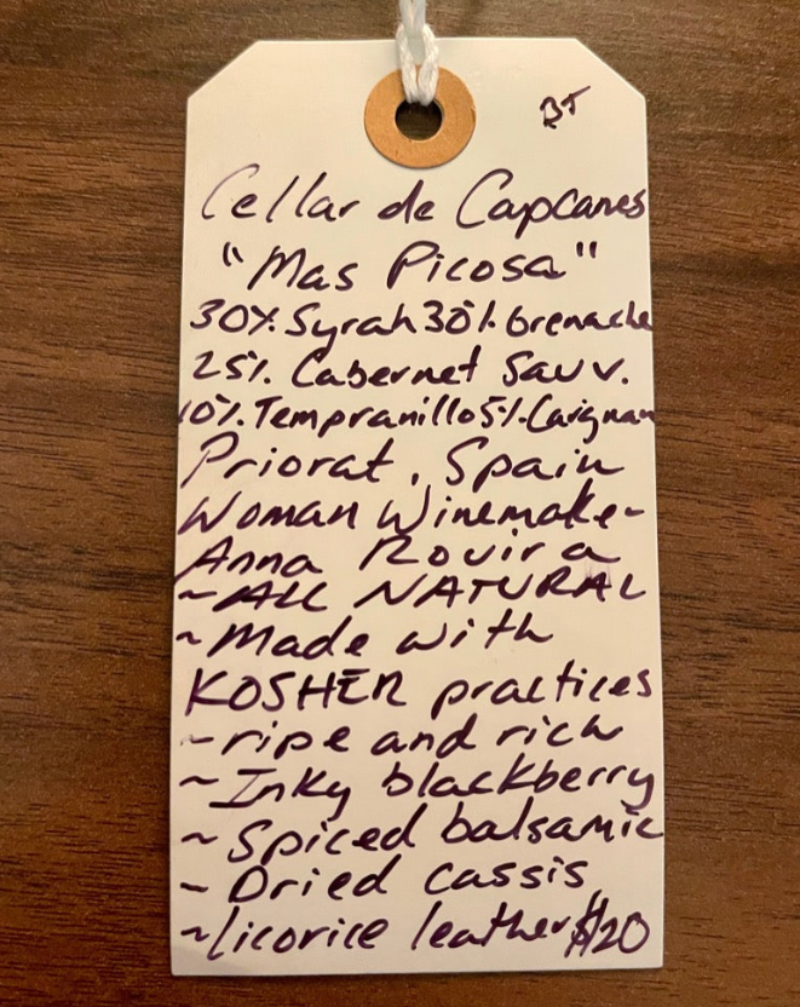 BT
Cellar de Capcanes
"Mas Picosa"
30% Syrah 30% Grenache
25% Cabernet Sauv.
10% Tempranillo 5% Carignan
Priorat, Spain
Woman Winemake-
Anna Rovira
~ALL NATURAL
~Made with
KOSHER practices
~ripe and rich
~Inky blackberry
~Spiced balsamic
~Dried cassis
~licorice leather $20